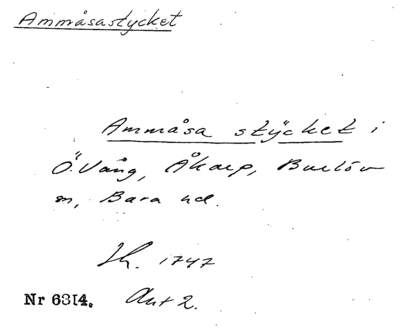 Ammåsastycket
Ammåsa stÿcket i
Ö. Vång, Åkarp, Burlöv
sn, Bara hd.
Lh. 1747
Nr 6314. Akt 2.